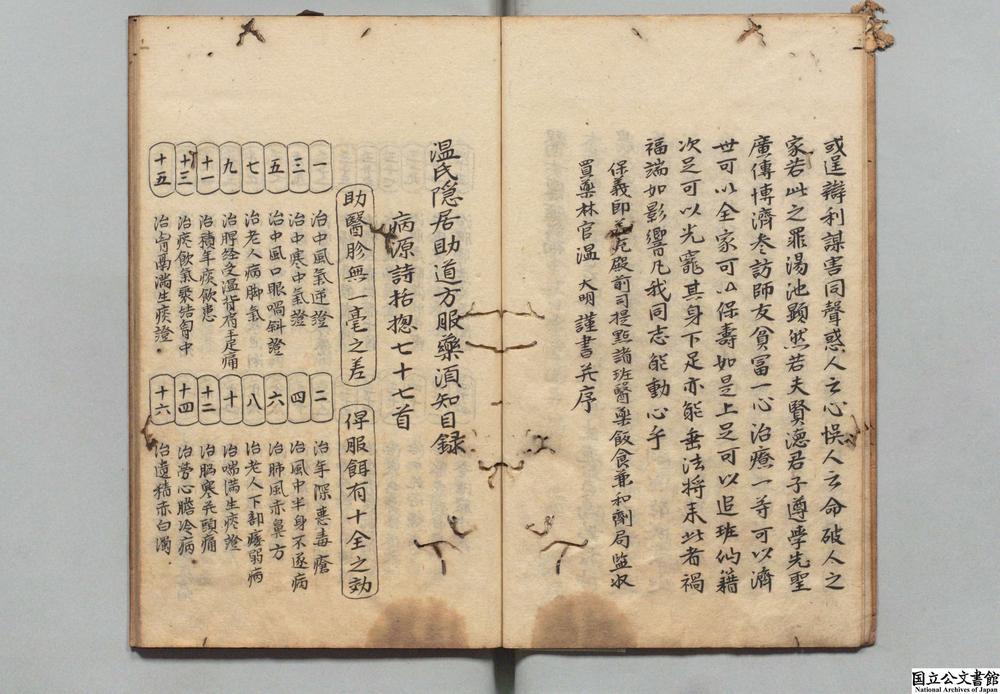 或逞辯利謀害同聲惑人之心悞人之命破人之
家若此之罪湯池顯然若夫賢德君子遵學先聖
廣傳博濟叅訪師友貧冨一心治療一等可以濟
世可以全家可以保壽如是上足可以追班仙籍
次足可以光寵其身下足亦能垂法將來此者禍
福端如影響凡我同志能動心乎
保義郎 殿前司提㸃諸班醫藥飯食兼和劑局監收
買藥林官温 大明謹書并序
温氏隠居助道方服藥湏知目録
病源詩括揔七十七首
助醫胗無一毫之差
俘服餌有十全之効
一 治中風氣逆證
二 治年深惡毒瘡
三 治中寒中氣證
四 治風中半身不遂病
五 治中風口眼喎斜證
六 治肺風赤鼻方
七 治老人病脚氣
八 治老人下部痿弱病
九 治脾経受温背膂走痛
十 治喘滿生痰證
十一 治積年痰飲患
十二 治腦寒并頭痛
十三 治痰飲氣聚結胷中
十四 治勞心膽冷病
十五 治胷鬲滿生痰證
十六 治遺精赤白濁
国立公文書館
National Archives of Japan